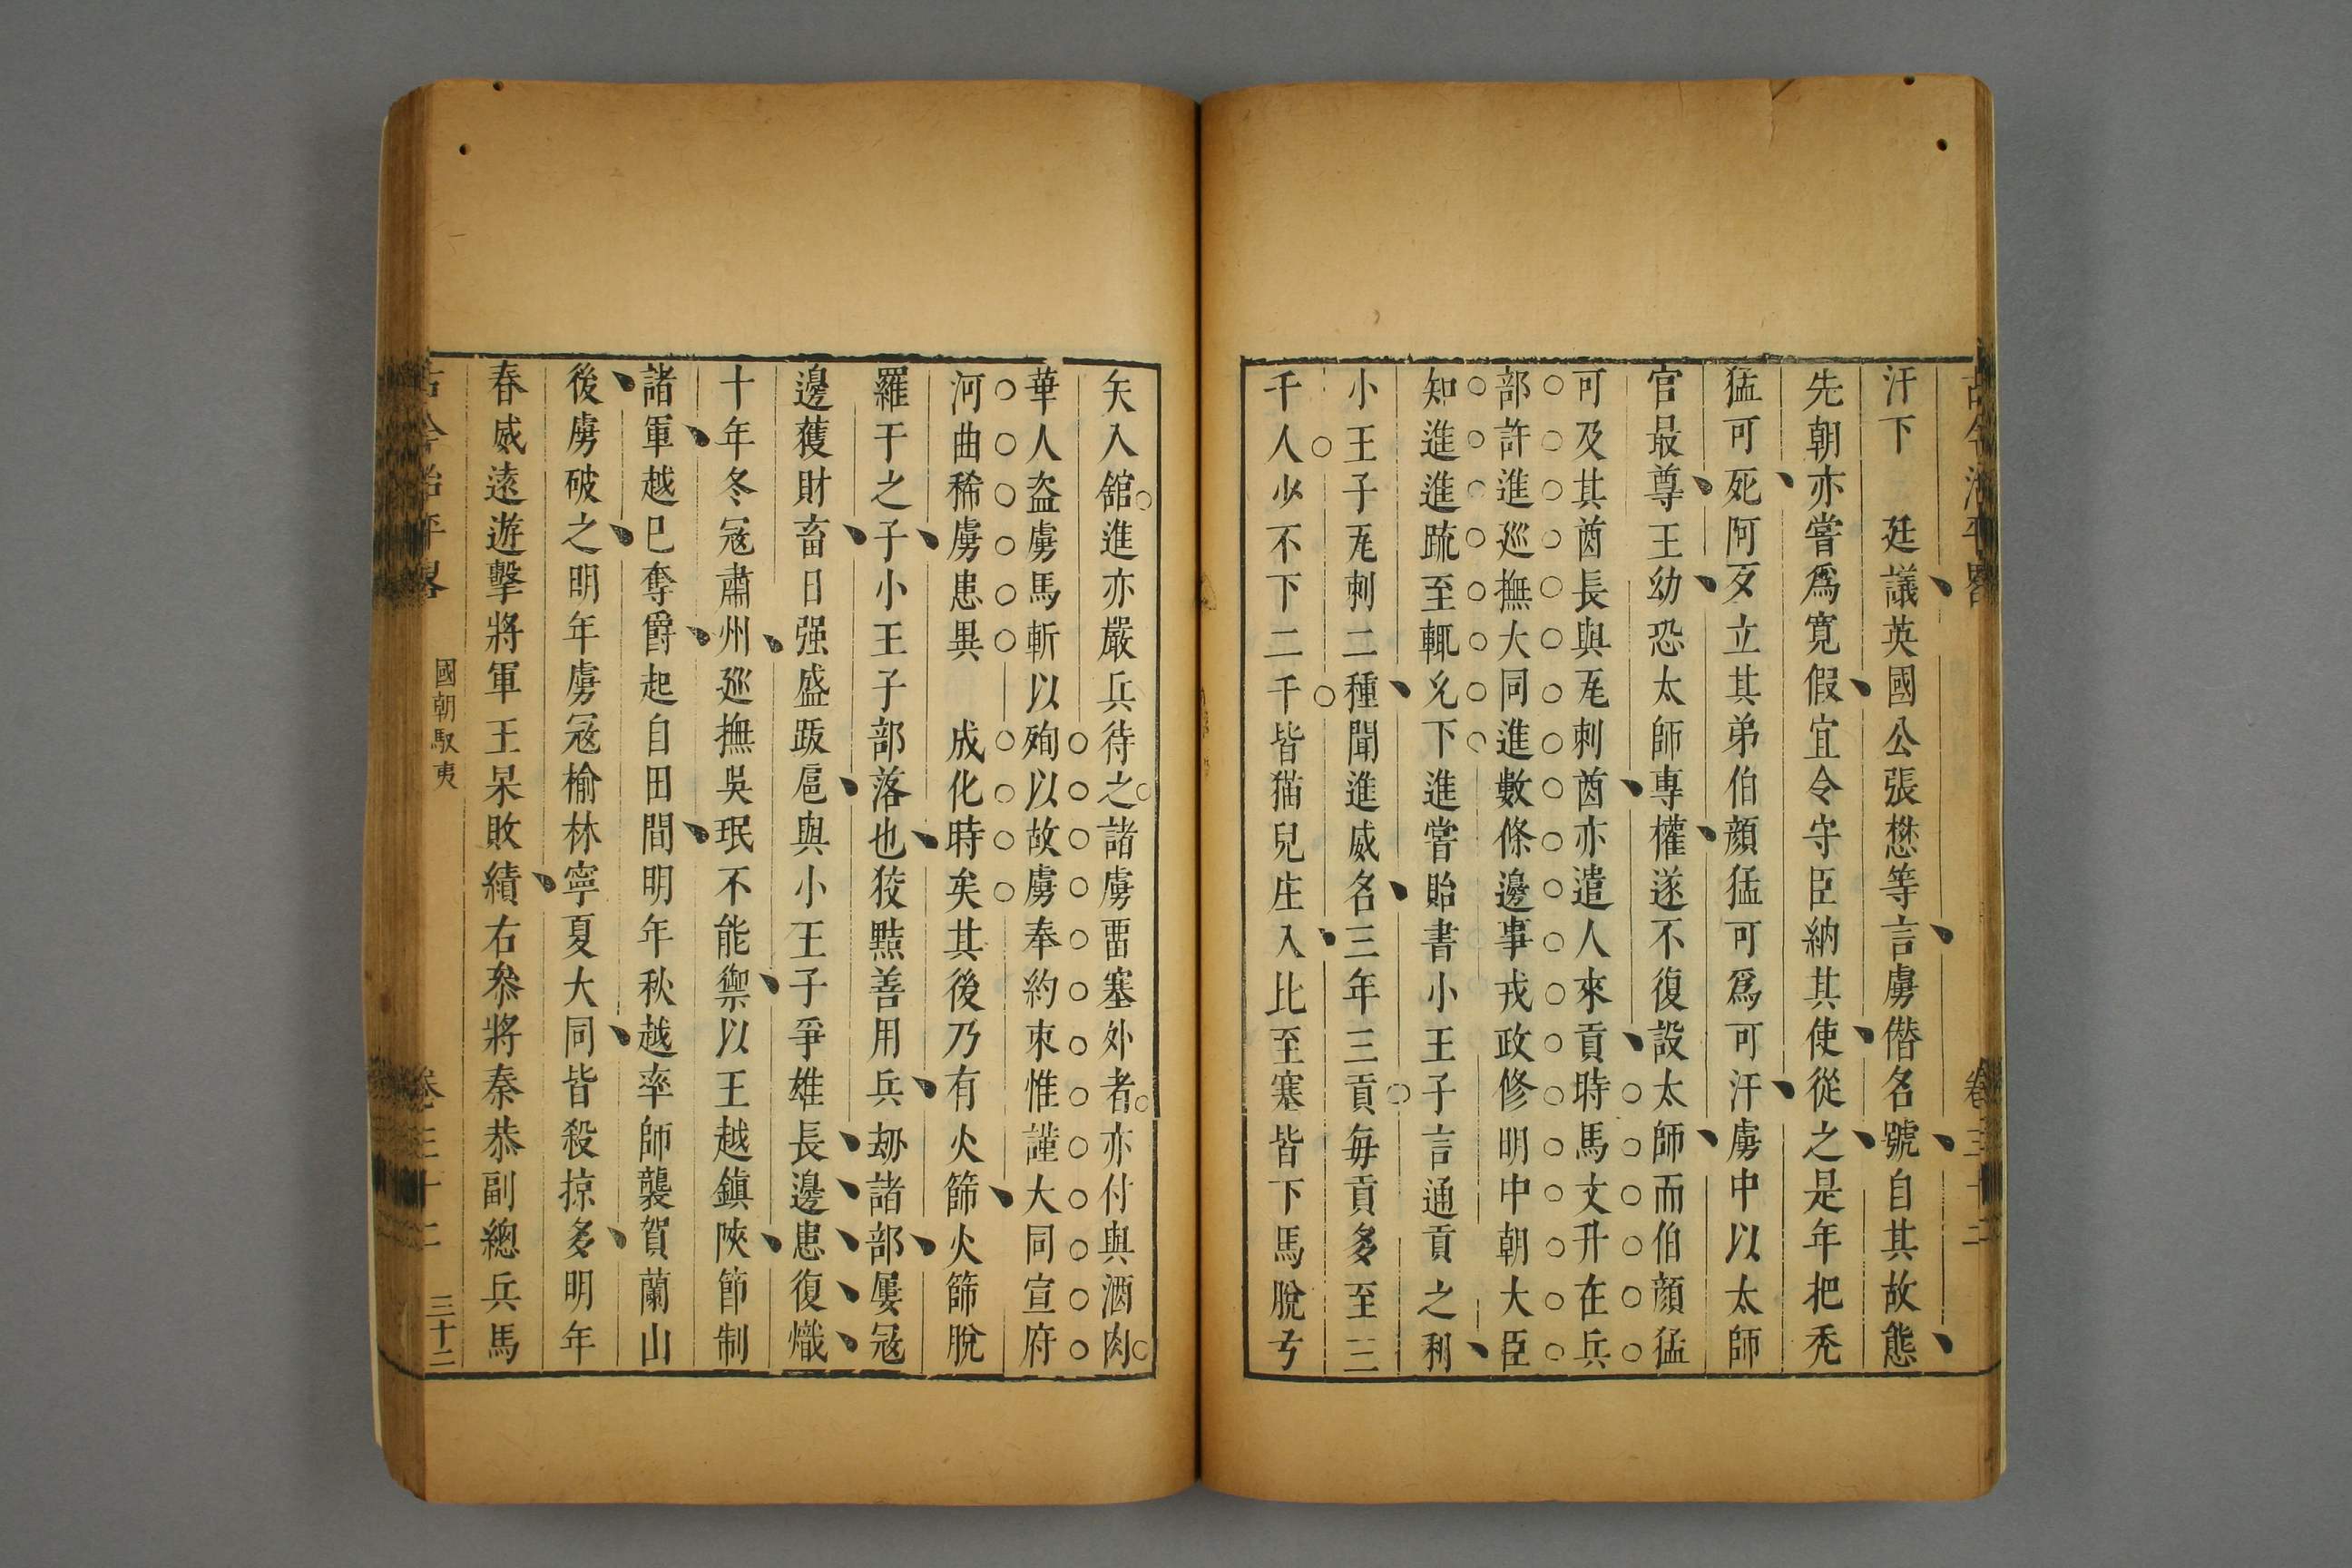 古今治平畧 卷三十二
汗下 廷議英國公張懋等言虜僭名號自其故態
先朝亦嘗爲寬假宜令守臣納其使從之是年把禿
猛可死阿歹立其弟伯顔猛可爲可汗虜中以太師
官最尊王幼恐太師專權遂不復設太師而伯顔猛
可及其酋長與瓦剌酋亦遣人來貢時馬文升在兵
部許進廵撫大同進數條邊事戎政修明中朝大臣
知進進䟽至輒兊下進嘗貽書小王子言通貢之利
小王子瓦剌二種聞進威名三年三貢每貢多至三
千人少不下二千皆猫兒庄入比至塞皆下馬脫弓
矢入舘進亦嚴兵待之諸虜畱塞外者亦付與酒肉
華人盗虜馬斬以殉以故虜奉約束惟謹大同宣府
河曲稀虜患異 成化時矣其後乃有火篩火篩脫
羅干之子小王子部落也狡黠善用兵刼諸部屢冦
邊獲財畜日强盛跋扈與小王子爭雄長邊患復熾
十年冬冦肅州廵撫吳珉不能禦以王越鎮陜節制
諸軍越巳奪爵起自田間明年秋越率師襲賀蘭山
後虜破之明年虜冦榆林寧夏大同皆殺掠多明年
春威遠遊擊將軍王杲敗績右叅將秦恭副總兵馬
古今治平畧 國朝馭夷 卷三十二 三十二